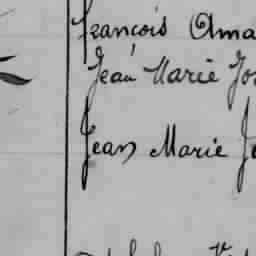 François Ama
Jean Marie Jos
Jean Marie Je